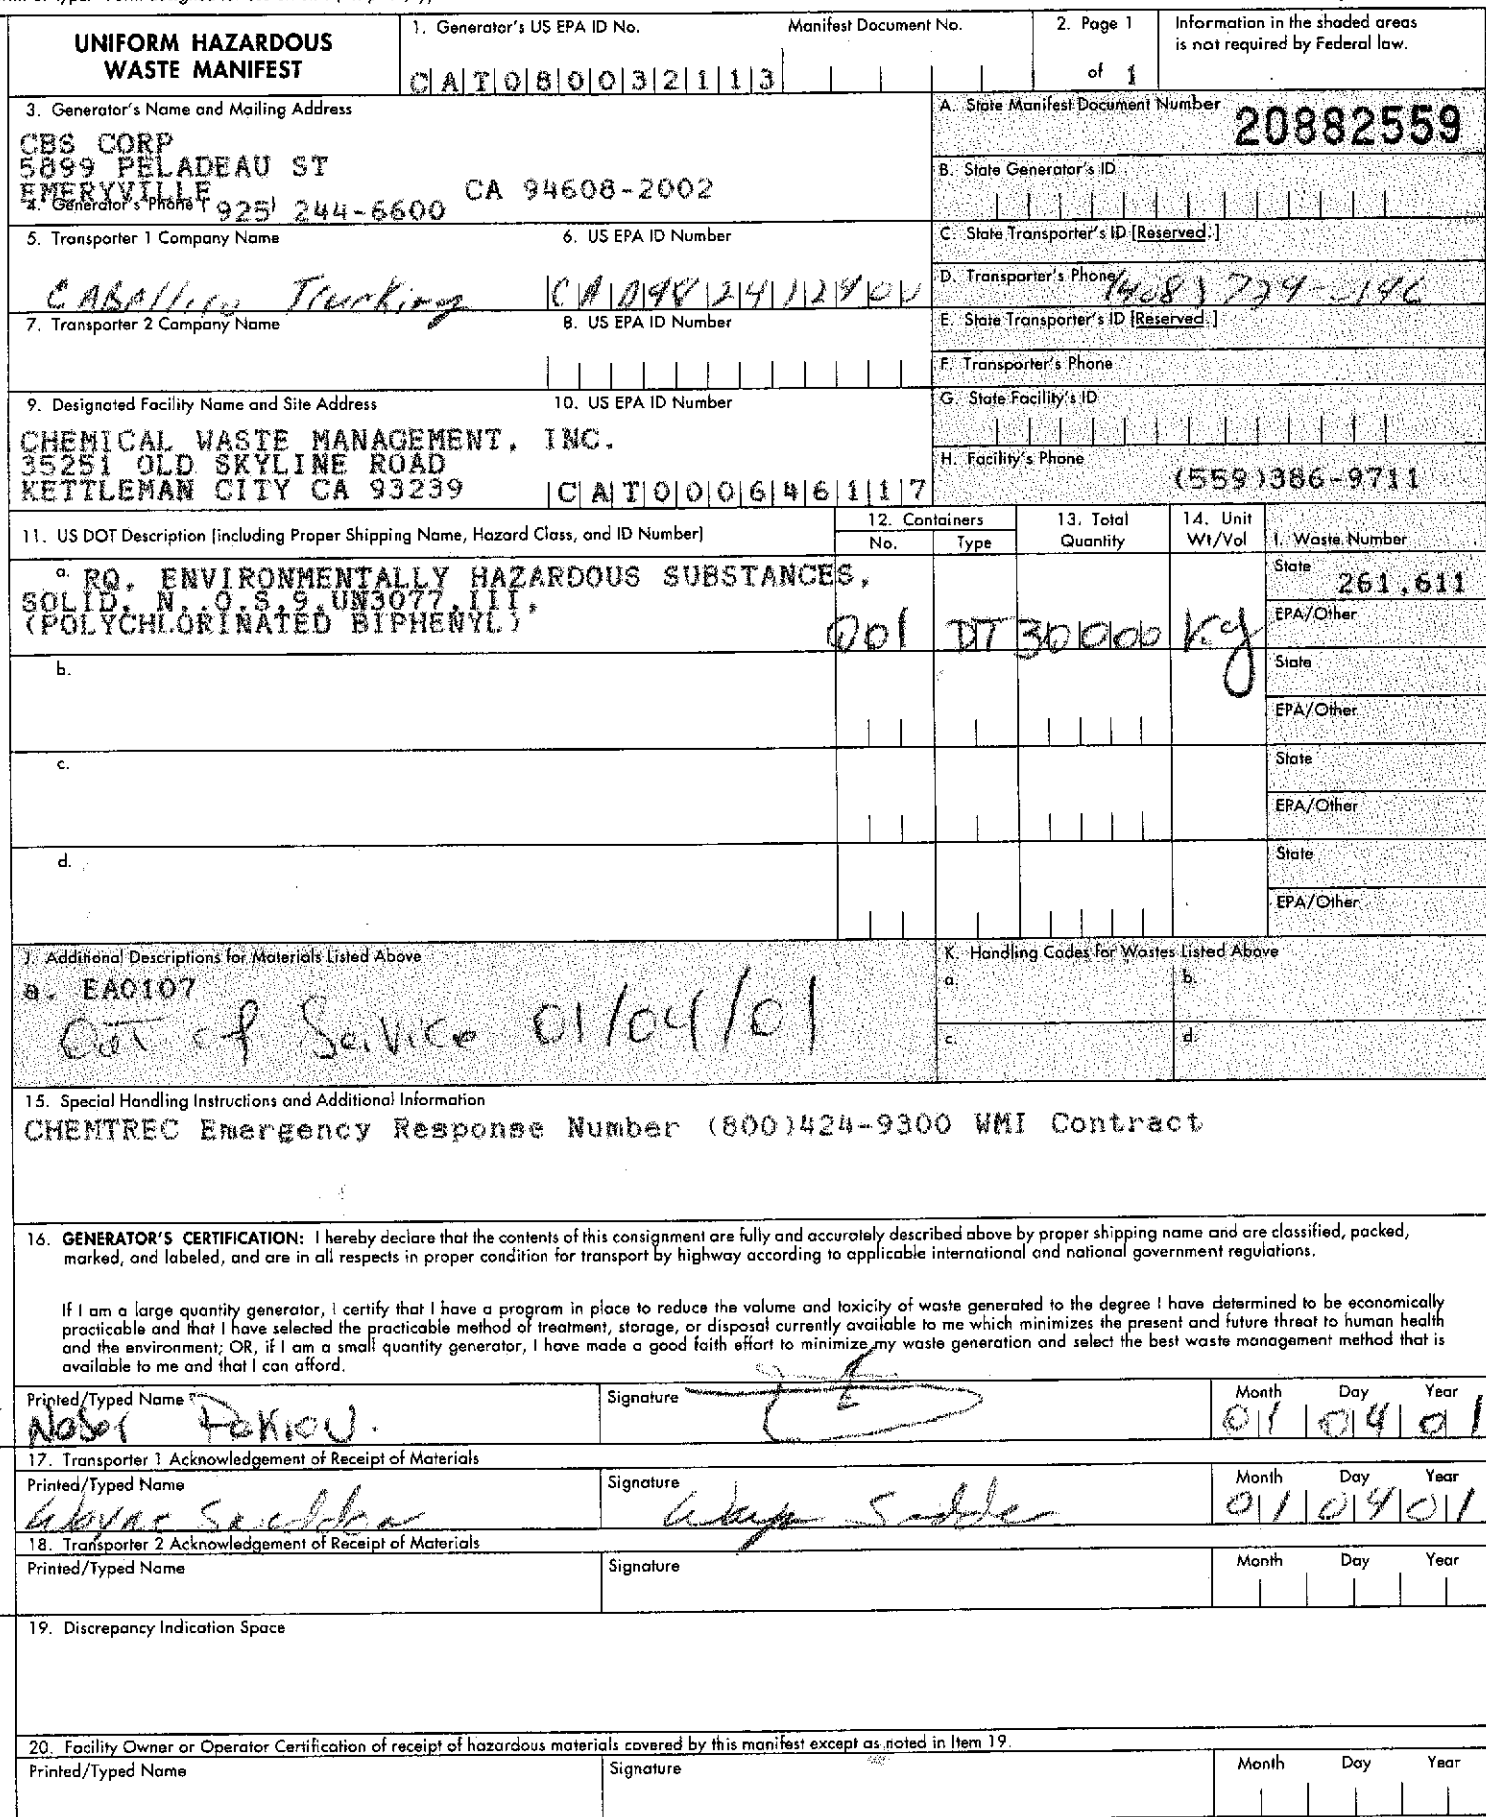 UNIFORM HAZARDOUS
WASTE MANIFEST
1. Generator's US EPA ID No.
Manifest Document No.
2. Page 1
of 1
Information in the shaded areas
is not required by Federal law.
CAT080032113
3. Generator's Name and Mailing Address
CBS CORP
5899 PELADEAU ST
EMERYVILLE CA 94608-2002
4. Generator's Phone ( 925) 244-6600
A. State Manifest Document Number
20882559
B. State Generator's ID
5. Transporter 1 Company Name
6. US EPA ID Number
C. State Transporter's ID [Reserved.]
Trucking
D. Transporter's Phone
7. Transporter 2 Company Name
8. US EPA ID Number
E. State Transporter's ID [Reserved.]
F. Transporter's Phone
9. Designated Facility Name and Site Address
10. US EPA ID Number
G. State Facility's ID
CHEMICAL WASTE MANAGEMENT, INC.
35251 OLD SKYLINE ROAD
KETTLEMAN CITY CA 93239
CAT000646117
H. Facility's Phone
(559)386-9711
11. US DOT Description (including Proper Shipping Name, Hazard Class, and ID Number)
12. Containers
No.
Type
13. Total
Quantity
14. Unit
Wt/Vol
I. Waste Number
a. RQ, ENVIRONMENTALLY HAZARDOUS SUBSTANCES,
SOLID, N..O.S,9,UN3077,III,
(POLYCHLORINATED BIPHENYL)
001 DT 30000 Kg
State
261,611
EPA/Other
b.
State
EPA/Other
c.
State
EPA/Other
d.
State
EPA/Other
J. Additional Descriptions for Materials Listed Above
a. EA0107
Out of Service 01/04/01
K. Handling Codes for Wastes Listed Above
a.
b.
c.
d.
15. Special Handling Instructions and Additional Information
CHEMTREC Emergency Response Number (800)424-9300 WMI Contract
16. GENERATOR'S CERTIFICATION: I hereby declare that the contents of this consignment are fully and accurately described above by proper shipping name and are classified, packed,
marked, and labeled, and are in all respects in proper condition for transport by highway according to applicable international and national government regulations.
If I am a large quantity generator, I certify that I have a program in place to reduce the volume and toxicity of waste generated to the degree I have determined to be economically
practicable and that I have selected the practicable method of treatment, storage, or disposal currently available to me which minimizes the present and future threat to human health
and the environment; OR, if I am a small quantity generator, I have made a good faith effort to minimize my waste generation and select the best waste management method that is
available to me and that I can afford.
Printed/Typed Name
Signature
Month Day Year
01 04 01
17. Transporter 1 Acknowledgement of Receipt of Materials
Printed/Typed Name
Signature
Month Day Year
Wayne
01 04 01
18. Transporter 2 Acknowledgement of Receipt of Materials
Printed/Typed Name
Signature
Month Day Year
19. Discrepancy Indication Space
20. Facility Owner or Operator Certification of receipt of hazardous materials covered by this manifest except as noted in Item 19.
Printed/Typed Name
Signature
Month Day Year